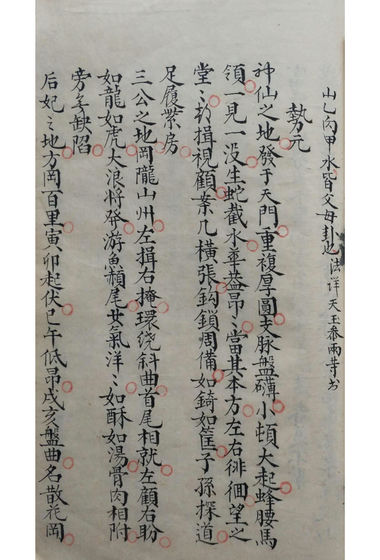 山乙丙甲水皆父母卦也法詳天玉叅兩等书
勢元
神仙之地發于天門重複厚圓支脉盤礴小頓大起蜂腰馬
領一見一没生蛇截水華葢昂〻當其本方左右徘徊望之
堂〻朝揖視顧案几橫張鈎鎖周備如錡如筐子孫探道
足履紫房
三公之地岡隴山州左揖右掩環绕斜曲首尾相就左顧右盼
如龍如虎大浪将發游魚頳尾其氣洋〻如酥如湯骨肉相附
旁無缺陷
后妃之地方岡百里寅卯起伏巳午低昂戌亥盤曲名散花岡